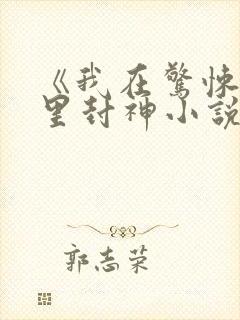 《我在驚悚
里封神小説
郭志荣